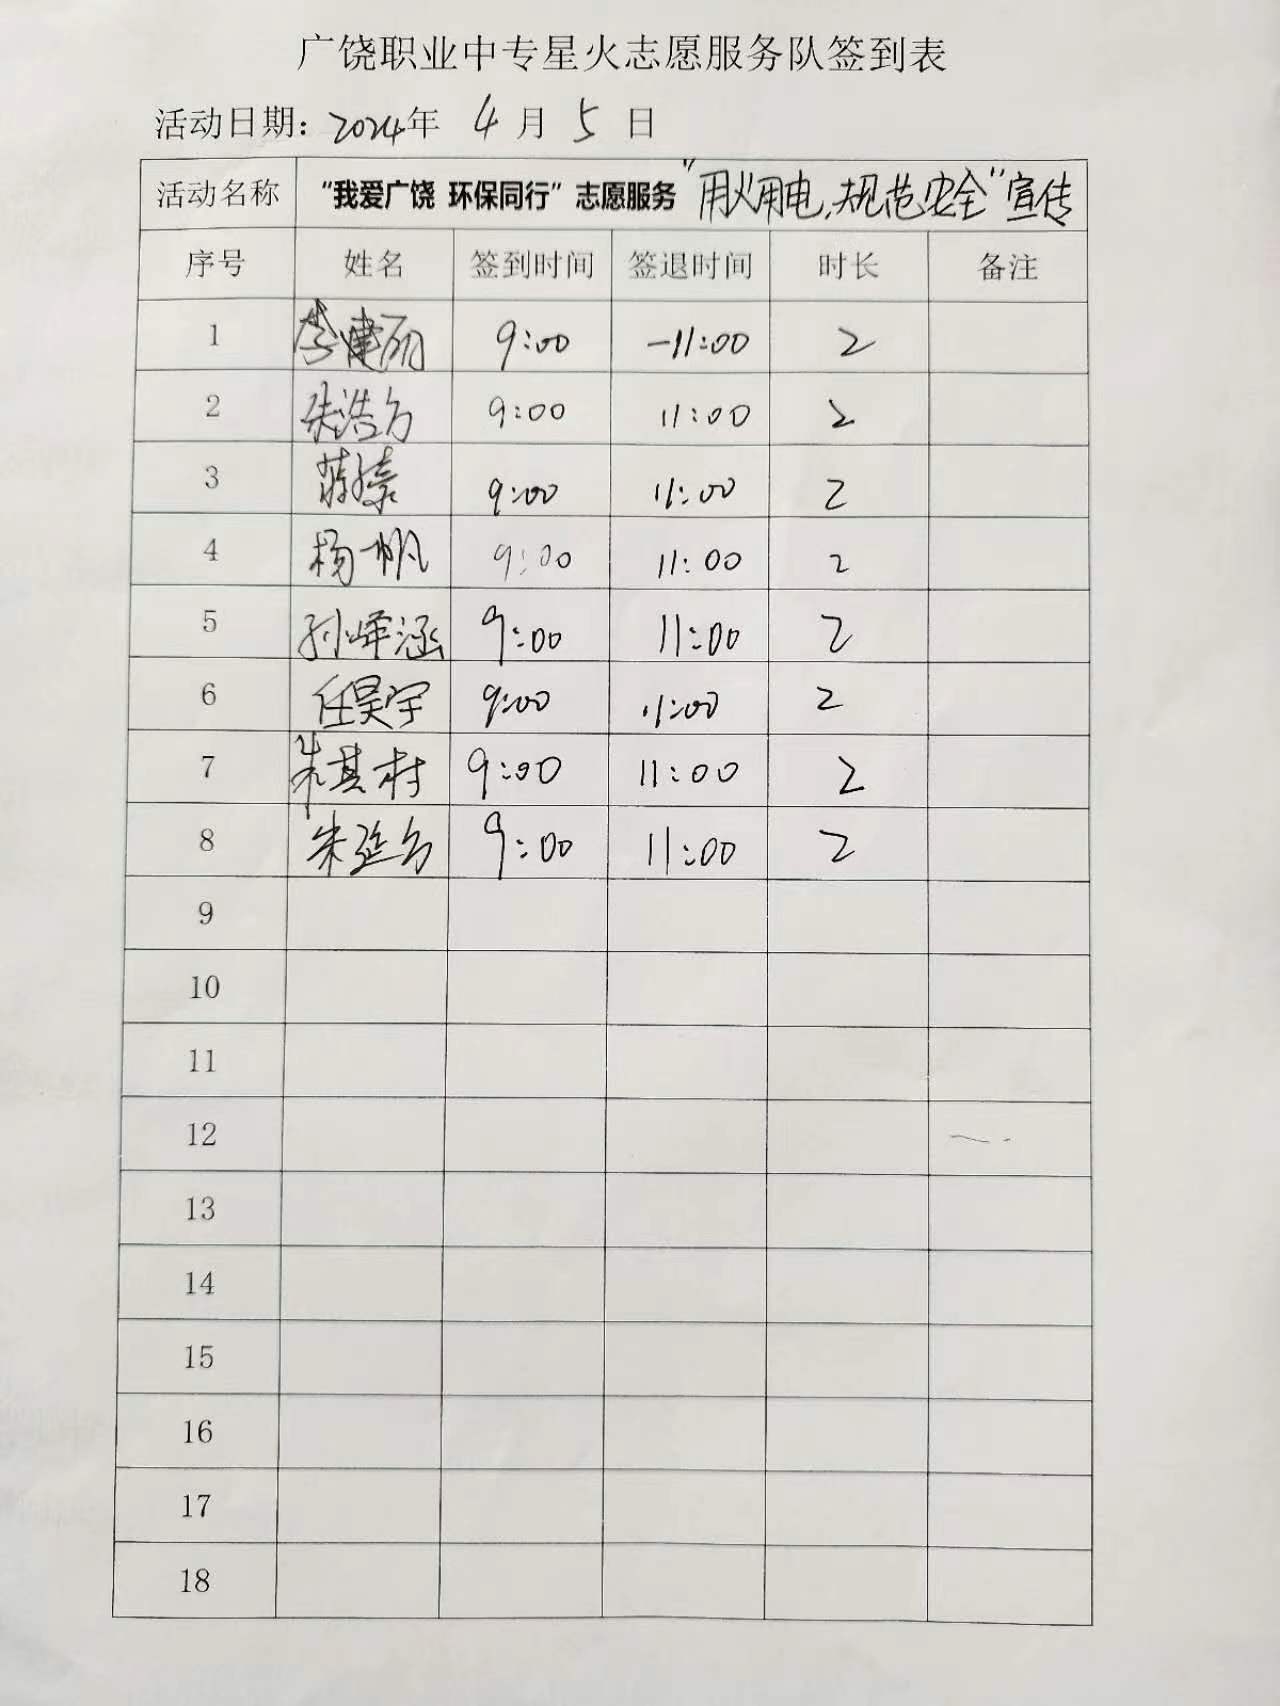 广饶职业中专星火志愿服务队签到表
活动日期: 2024年 4 月 5 日
活动名称 “我爱广饶 环保同行”志愿服务 “用火用电,规范安全”宣传
序号 姓名 签到时间 签退时间 时长 备注
1 李建丽 9:00 -11:00 2
2 朱浩方 9:00 11:00 2
3 9:00 11:00 2
4 杨一帆 9:00 11:00 2
5 孙峰涵 9:00 11:00 2
6 任昊宇 9:00 11:00 2
7 朱其村 9:00 11:00 2
8 朱延方 9:00 11:00 2
9
10
11
12
13
14
15
16
17
18